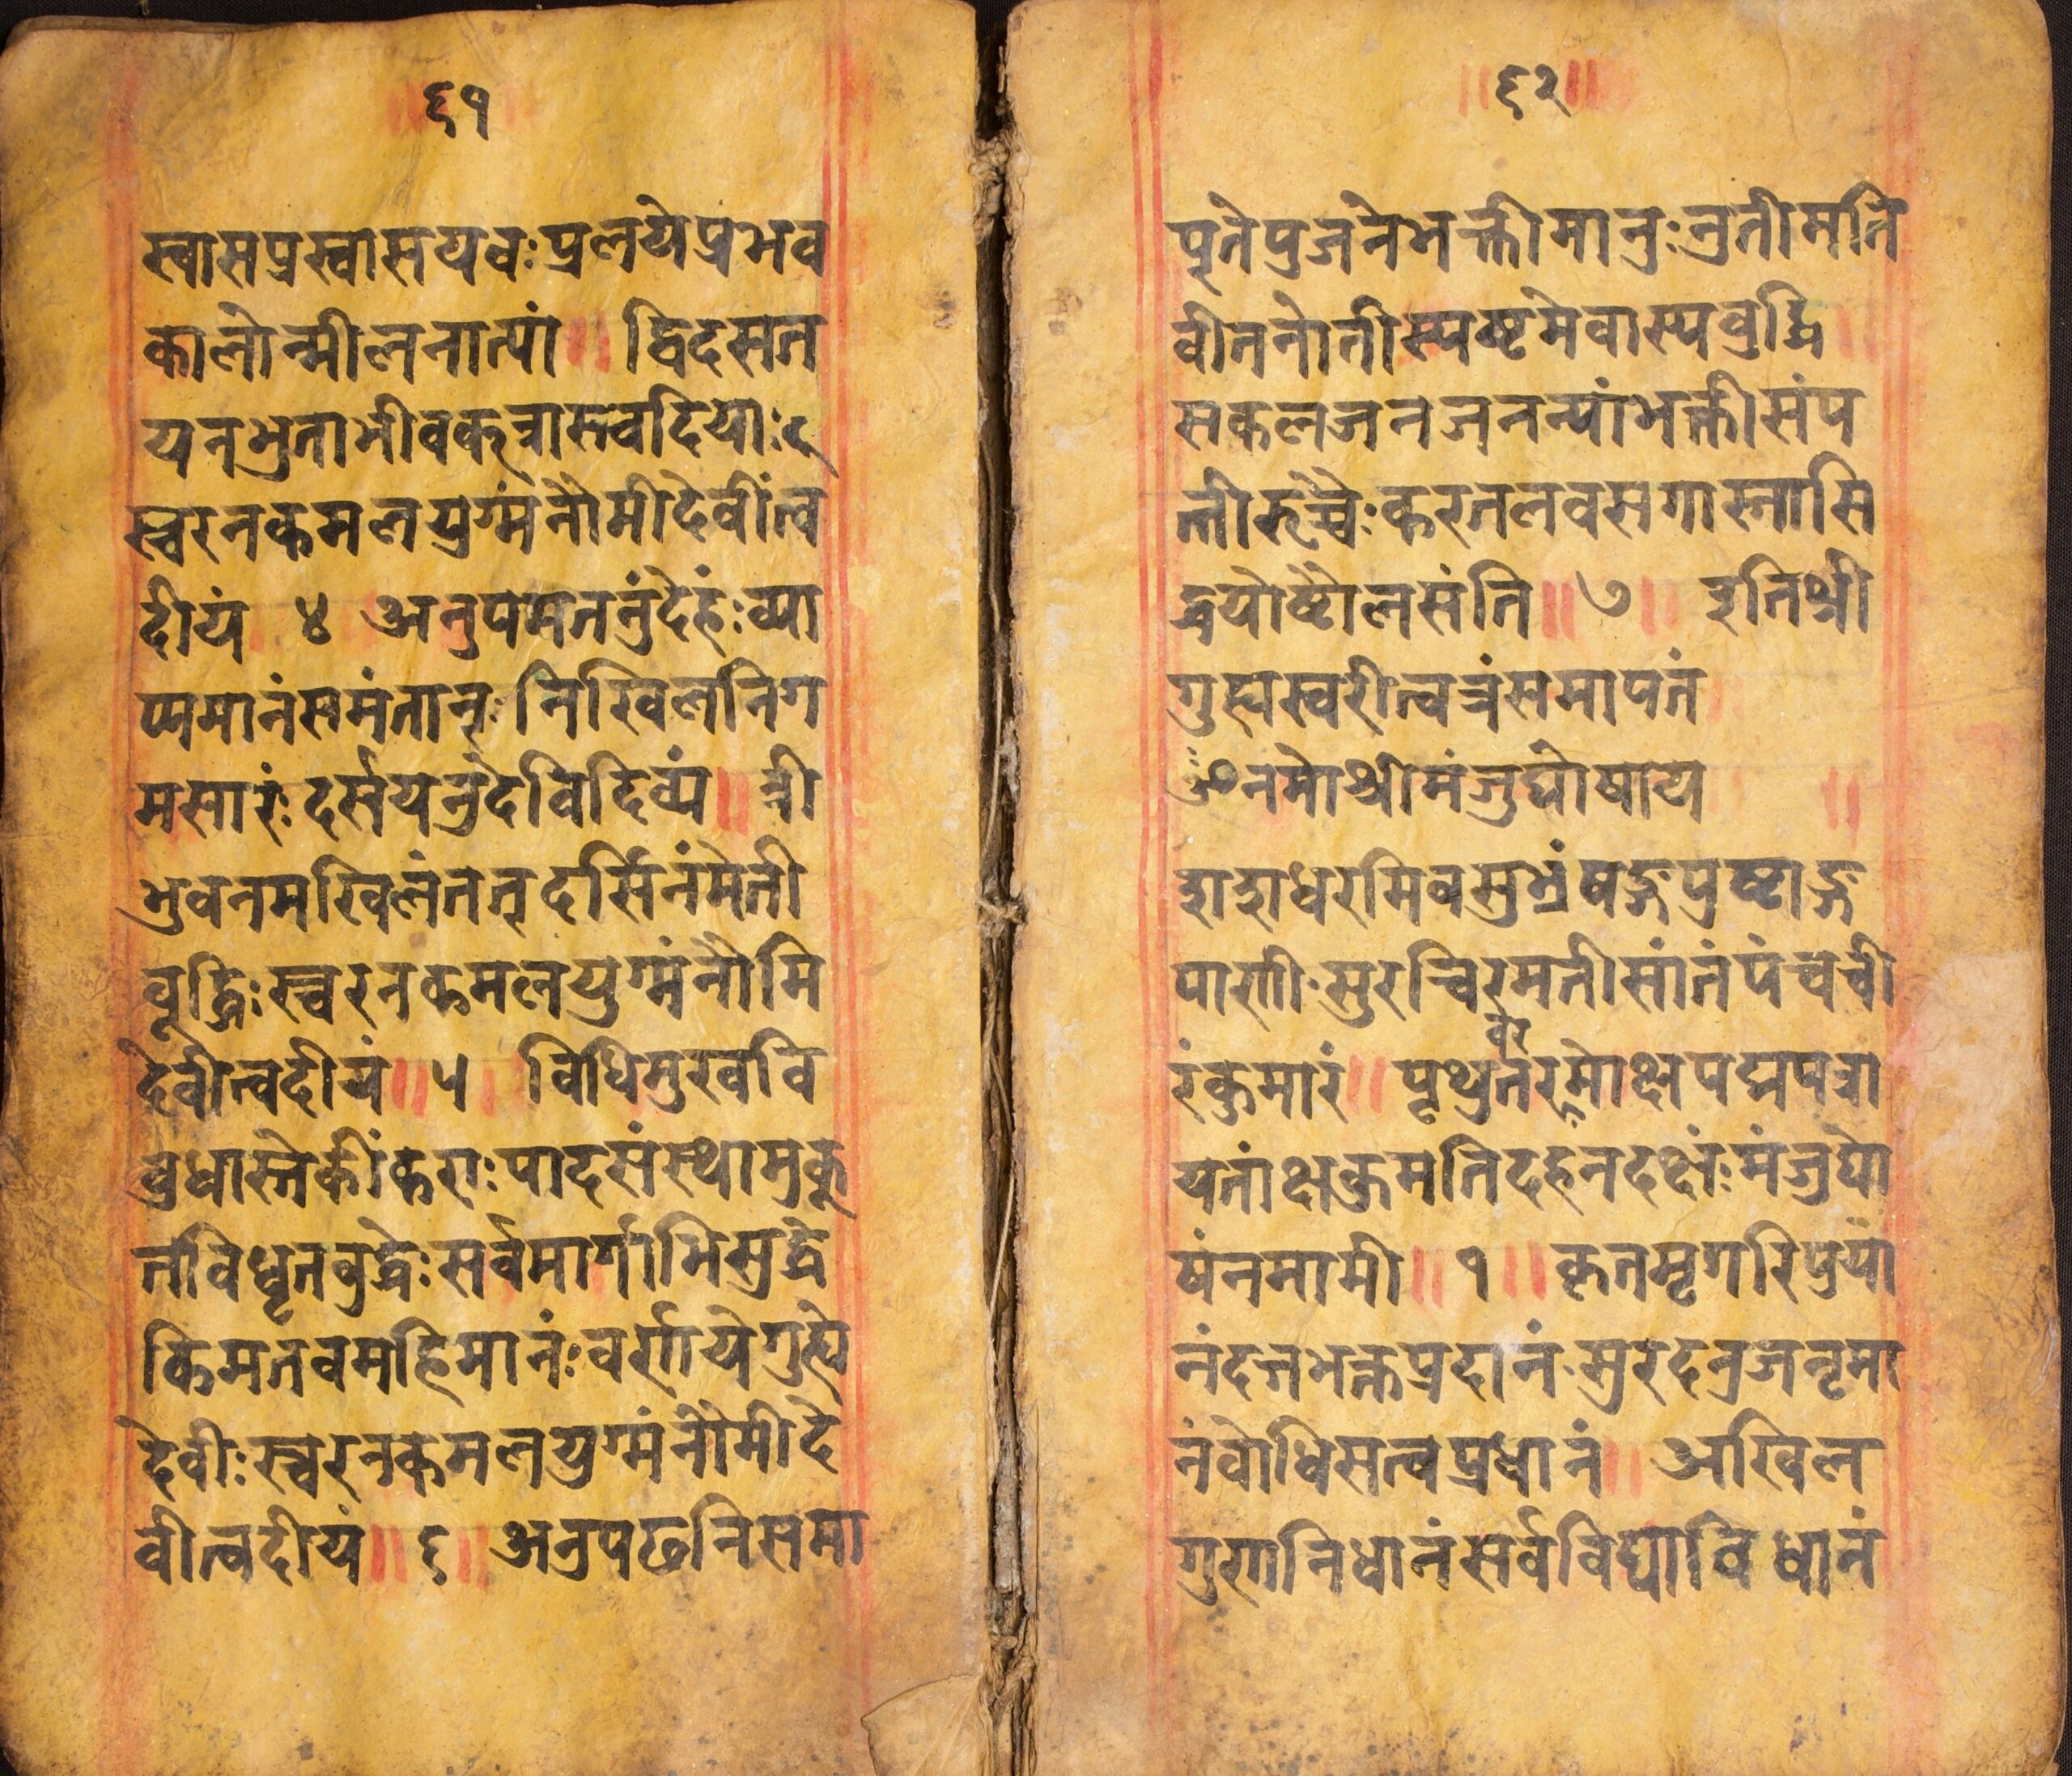 ६१
स्वासप्रस्वासयवः प्रलयेप्रभव
कालोन्मीलनात्यां ॥ द्विदसत
यनभुताभीवकत्रास्तवदियाः
स्वरनकमलयुग्मंनौमीदेवींत्व
दीयं ४ अनुपमेतनुंदेहंः व्या
प्यमानंसमंतान् निखिलनिग
मसारंः दर्सयनुंदेविदिव्यं ॥ त्री
भुवनमखिलंतत् दर्सिनंमेती
वृद्धिः स्वरनकमलयुग्मंनौमि
देवीत्वदीयं ॥ ५ । विधिमुखवि
वुधास्तेकींकराः पादसंस्थामुकू
तविधृतवुद्धेः सर्वमार्गाभिमुद्धे
किमतवमहिमानंः वर्णयेगुह्ये
देवीः स्वरनकमलयुग्मंनौमीदे
वीत्वदीयं ॥ ६ ॥ अनुपठनिसमा
॥ ६२ ॥
पृतेपुजनेभक्तीमानुः नुतीमति
वीतनोतीस्पष्टमेवास्यवुद्धि ॥
सकलजनजनन्यांभक्तीसंप
त्तीरुच्चैः करतलवसगास्तासि
द्वयोष्टौलसंति ॥ ७ ॥ इतिश्री
गुह्यस्वरीत्वत्रंसमापतं
ॐनमोश्रीमंजुघोषाय ॥
शशधरमिवसुभ्रंषङ्गप्रष्टाङ्ग
पाणीः सुरच्चिरमतीसांतंपंचची
रंकुमारं ॥ पृथुतरमोक्षपद्मपत्रा
वर
यतांक्षकुमतिदहनदक्षंः मंजुघो
षंनमामी ॥ १ ॥ कृतमृगरिपुयां
नंदत्तभक्तप्रदानंः सुरदनुजनृमा
नंवोधिसत्वप्रधानं ॥ अखिल
गुणनिधानंसर्वविद्याविधानं